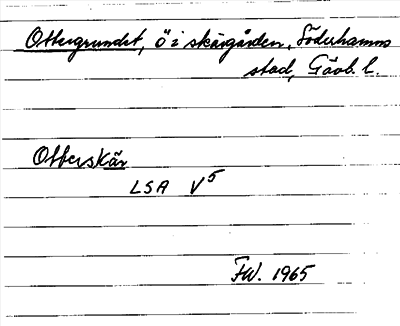 Ottergrundet, ö i skärgården, Söderhamns
stad, Gävb. l.
Otterskär
LSA V5
FW. 1965